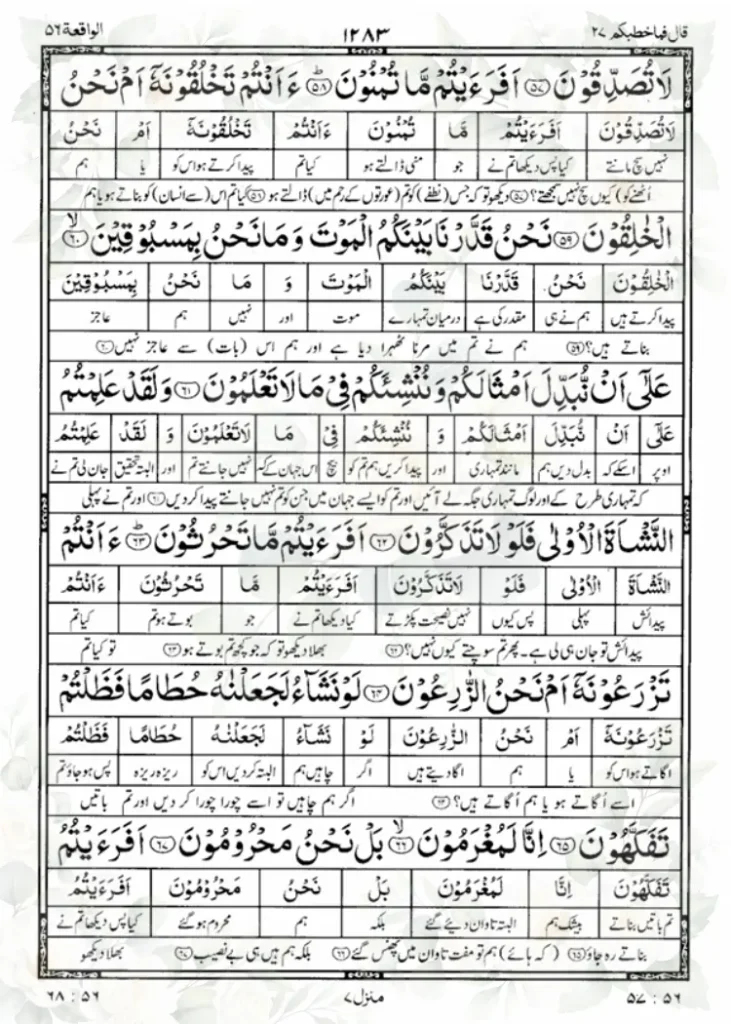 قال فماخطبكم ٢٧ ١٢٨٣ الواقعة ٥٦
لَا تُصَدِّقُوْنَ ﴿٥٧﴾ اَفَرَءَيْتُمْ مَّا تُمْنُوْنَ ﴿٥٨﴾ ءَاَنْتُمْ تَخْلُقُوْنَهٗٓ اَمْ نَحْنُ
لَاتُصَدِّقُوْنَ اَفَرَءَيْتُمْ مَّا تُمْنُوْنَ ءَاَنْتُمْ تَخْلُقُوْنَهٗٓ اَمْ نَحْنُ
نہیں سچ مانتے کیا پس دیکھا تم نے جو منی ڈالتے ہو کیا تم پیدا کرتے ہو اس کو یا ہم
اُٹھنے کو) کیوں سچ نہیں سمجھتے؟ ﴿٥٧﴾ دیکھو تو کہ جس (نطفے) کو تم (عورتوں کے رحم میں) ڈالتے ہو ﴿٥٨﴾ کیا تم اس (سے انسان) کو بناتے ہو یا ہم
الْخٰلِقُوْنَ ﴿٥٩﴾ نَحْنُ قَدَّرْنَا بَيْنَكُمُ الْمَوْتَ وَمَا نَحْنُ بِمَسْبُوْقِيْنَ ﴿٦٠﴾ۙ
الْخٰلِقُوْنَ نَحْنُ قَدَّرْنَا بَيْنَكُمُ الْمَوْتَ وَ مَا نَحْنُ بِمَسْبُوْقِيْنَ
پیدا کرتے ہیں ہم نے ہی مقدر کی ہے درمیان تمہارے موت اور نہیں ہم عاجز
بناتے ہیں؟ ﴿٥٩﴾ ہم نے تم میں مرنا ٹھہرا دیا ہے اور ہم اس (بات) سے عاجز نہیں ﴿٦٠﴾
عَلٰٓى اَنْ نُّبَدِّلَ اَمْثَالَكُمْ وَنُنْشِئَكُمْ فِىْ مَا لَا تَعْلَمُوْنَ ﴿٦١﴾ وَلَقَدْ عَلِمْتُمُ
عَلٰٓى اَنْ نُّبَدِّلَ اَمْثَالَكُمْ وَ نُنْشِئَكُمْ فِىْ مَا لَاتَعْلَمُوْنَ وَ لَقَدْ عَلِمْتُمُ
اوپر اسکے کہ بدل دیں ہم مانند تمہاری اور پیدا کریں ہم تم کو بیچ اس جہان کے کہ نہیں جانتے تم اور البتہ تحقیق جان لی تم نے
کہ تمہاری طرح کے اور لوگ تمہاری جگہ لے آئیں اور تم کو ایسے جہان میں جن کو تم نہیں جانتے پیدا کر دیں ﴿٦١﴾ اور تم نے پہلی
النَّشْاَةَ الْاُوْلٰى فَلَوْ لَا تَذَكَّرُوْنَ ﴿٦٢﴾ اَفَرَءَيْتُمْ مَّا تَحْرُثُوْنَ ﴿٦٣﴾ؕ ءَاَنْتُمْ
النَّشْاَةَ الْاُوْلٰى فَلَوْ لَاتَذَكَّرُوْنَ اَفَرَءَيْتُمْ مَّا تَحْرُثُوْنَ ءَاَنْتُمْ
پیدائش پہلی پس کیوں نہیں نصیحت پکڑتے کیا دیکھا تم نے جو بوتے ہو تم کیا تم
پیدائش تو جان ہی لی ہے۔ پھر تم سوچتے کیوں نہیں؟ ﴿٦٢﴾ بھلا دیکھو تو کہ جو کچھ تم بوتے ہو ﴿٦٣﴾ تو کیا تم
تَزْرَعُوْنَهٗٓ اَمْ نَحْنُ الزّٰرِعُوْنَ ﴿٦٤﴾ لَوْ نَشَآءُ لَجَعَلْنٰهُ حُطَامًا فَظَلْتُمْ
تَزْرَعُوْنَهٗٓ اَمْ نَحْنُ الزّٰرِعُوْنَ لَوْ نَشَآءُ لَجَعَلْنٰهُ حُطَامًا فَظَلْتُمْ
اگاتے ہو اس کو یا ہم اگا دیتے ہیں اگر چاہیں ہم البتہ کر دیں اس کو ریزہ ریزہ پس ہو جاؤ تم
اسے اُگاتے ہو یا ہم اُگاتے ہیں؟ ﴿٦٤﴾ اگر ہم چاہیں تو اسے چورا چورا کر دیں اور تم باتیں
تَفَكَّهُوْنَ ﴿٦٥﴾ اِنَّا لَمُغْرَمُوْنَ ﴿٦٦﴾ۙ بَلْ نَحْنُ مَحْرُوْمُوْنَ ﴿٦٧﴾ اَفَرَءَيْتُمُ
تَفَكَّهُوْنَ اِنَّا لَمُغْرَمُوْنَ بَلْ نَحْنُ مَحْرُوْمُوْنَ اَفَرَءَيْتُمُ
تم باتیں بناتے بیشک ہم البتہ تاوان دیئے گئے بلکہ ہم محروم ہو گئے کیا پس دیکھا تم نے
بناتے رہ جاؤ ﴿٦٥﴾ (کہ ہائے) ہم تو مفت تاوان میں پھنس گئے ﴿٦٦﴾ بلکہ ہم ہیں ہی بے نصیب ﴿٦٧﴾ بھلا دیکھو
٥٦ : ٥٧ منزل ٧ ٥٦ : ٦٨